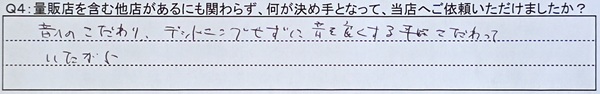 Q4：量販店を含む他店があるにも関わらず、何が決め手となって、当店へご依頼いただけましたか？
音へのこだわり、デットニングせずに音を良くする手法にこだわって
いたがた